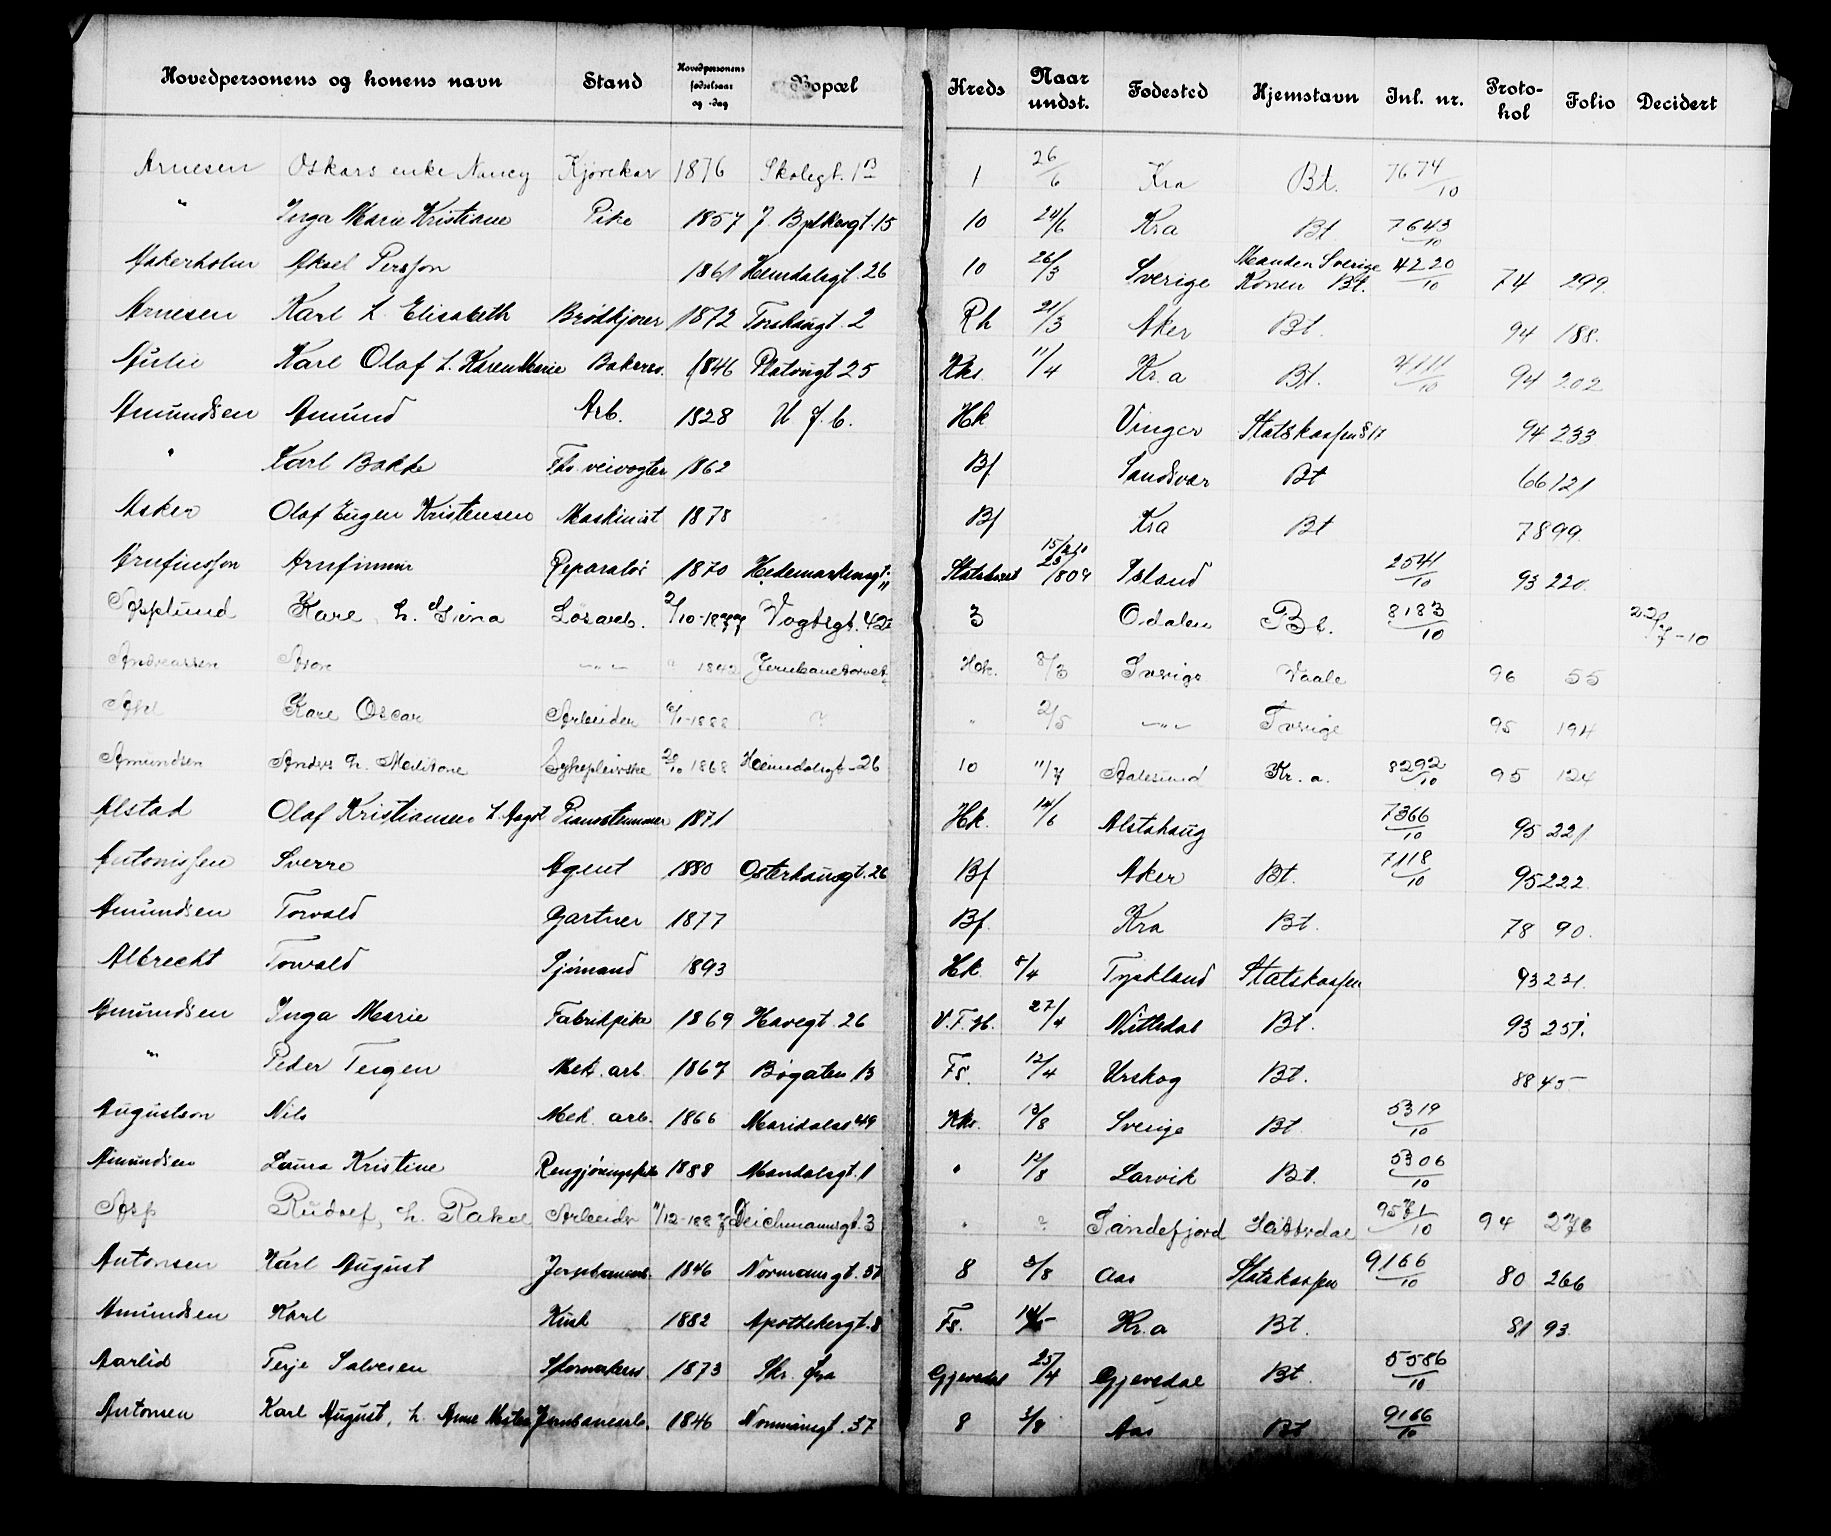 Hovedpersonens og konens navn Stand Hovedpersonens fødselsaar og -dag Bopæl Kreds Naar undst. Fødested Hjemstavn Inl. nr. Protokol Folio Decidert
Arnesen Oskars enke Nancy 1876 Skolegt. 1 B 1 26/6 Kra Bt. 7674/10
" Inga Marie Kristiane Pike 1857 15 10 24/6 Kra Bt 7643/10
Akerholm Aksel Persson 1861 Heimdalsgt. 26 10 26/3 Sverige Manden Sverige Konen Bt. 4220/10 74 299.
Arnesen Karl h. Elisabeth Brødkjører 1872 2 Rh 21/3 Aker Bt. 94 188.
Karl Olaf h. Karen Marie 1846 Platousgt 25 Kks. 11/4 Kr.a Bt. 94 202
Amundsen Amund Arb. 1828 U. f. b. Hk Vinger Statskassen § 17 94 233
" Karl Bakke veivogter 1862 Bf Sandsvær Bt 66 121
Asker Olaf Eugen Kristensen Maskinist 1878 Bf Kra Bt 78 99.
Arnfinsson Arnfinnur Reparatør 1870 Island 2541/10 93 220.
Asplund Karl, h. Gina Løsarb. Vogtsgt. 42 3 Odalen Bt. 8183/10
Andreassen 1842 Jernbanetorvet Hk. 8/3 Sverige Vaale 96 55
Karl Oscar Arbeider 1888 ? " 2/5 Sverige 95 194
Amundsen Anders h. Sykepleierske 20/10 1868 Heimdalsgt. 26 10 11/7 Aalesund Kr.a. 8292/10 95 124
Alstad Olaf Kristiansen h. Aagot Pianostemmer 1871 Hk. 14/6 Alstahaug 7366/10 95 221
Antonissen Sverre Agent 1880 Osterhausgt. 26 Bf Aker Bt. 7118/10 95 222.
Amundsen Torvald Gartner 1877 Bf. Kra Bt. 78 90.
Albrecht Torvald Sjømand 1893 Hk. 8/4 Tyskland Statskassen 93 231.
Amundsen Inga Marie Fabrikpike 1869 Havegt. 26 V.F.H. 27/4 Nittedal Bt. 93 251.
" Peder Teigen Mek. arb. 1867 Bøgaten 13 Fs. 12/4 Urskog Bt. 88 45
Augustson Nils Mek. arb. 1866 Maridalsv 49 Kks. 13/8 Sverige Bt. 5319/10
Amundsen Laura Kristine Rengjøringspike 1888 Mandalsgt. 1 " 12/8 Larvik Bt. 5306/10
Asp Rudolf, h. Rakel Arbeider Deichmannsgt. 3 " ? Sandefjord Hitterdal 9571/10 94 276
Antonsen Karl August Jernbanearb. 1846 Normansgt. 37 8 3/8 Aas Statskassen 9166/10 80 266
Amundsen Karl Kusk 1882 Apothekergt. 8 Fs. Kr.a Bt. 81 93.
Aarlid Terje Salvesen Skomakers. 1873 Gjøvedal 25/4 Gjøvedal Bt. 5586/10
Antonsen Karl August, h. Anne Jernbanearb. 1846 Normansgt. 37 8 3/8 Aas Bt 9166/10